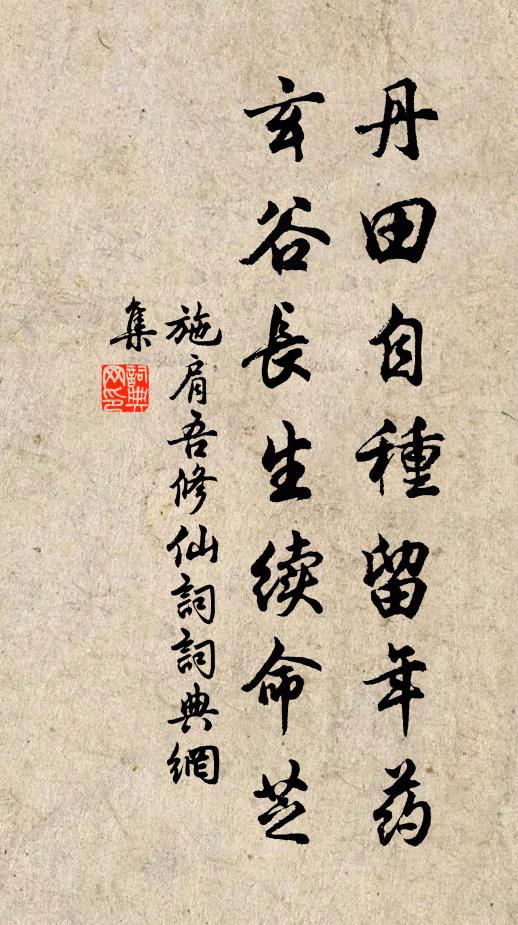 丹田自種留年药
玄谷長生续命芝
施肩吾修仙詞詞典網
集
詞典
网印